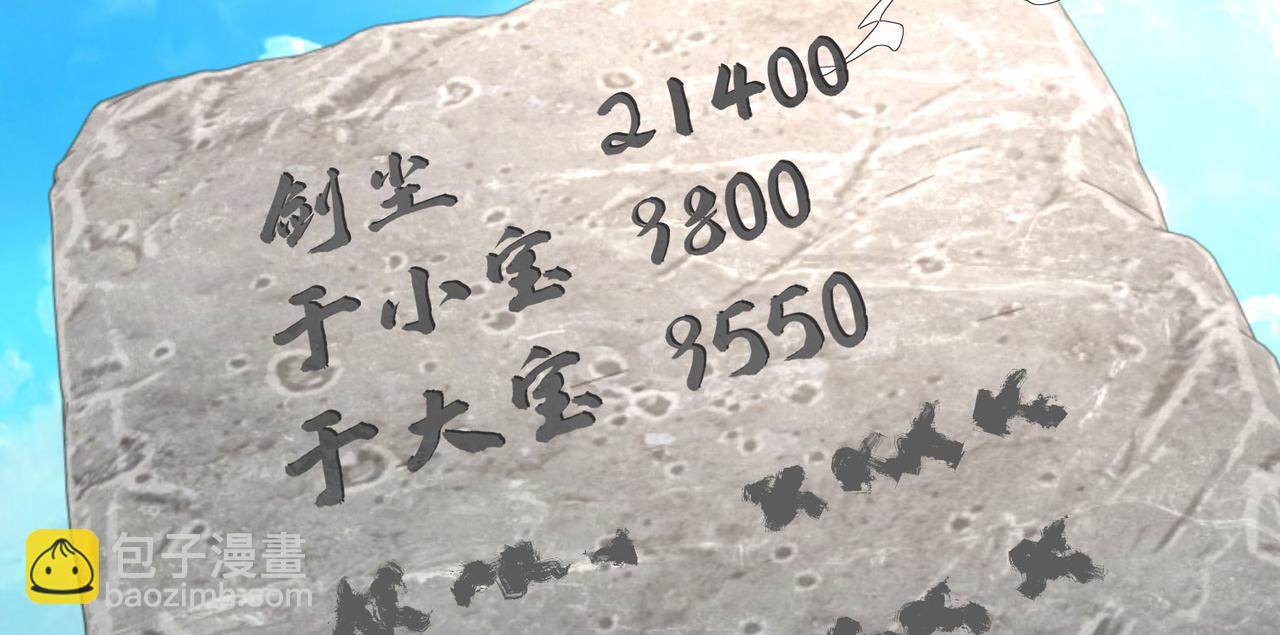 剑尘 21400
于小宝 9800
于大宝 9550
包子漫畫
baozimh.com